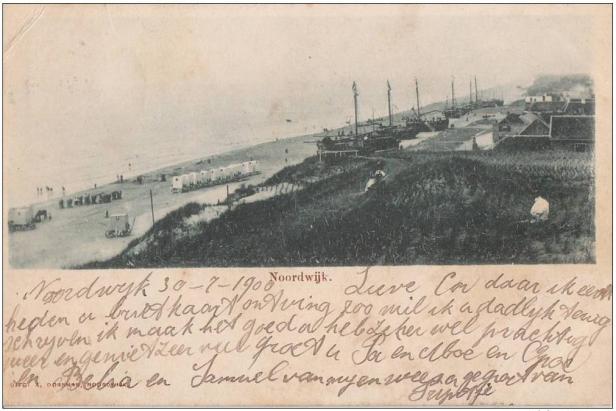 Noordwijk.
Noordwijk 30-7-1900 Lieve Cor daar ik eerst
heden u briefkaart ontving zoo wil ik u dadlijk terug
schrijven ik maak het goed a heb zeher wel prachtig
weer en geniet zeer veel groet u Pa en
en Betsie en Samuel van mij en wees gegroet van
UITG. NOORDWIJK